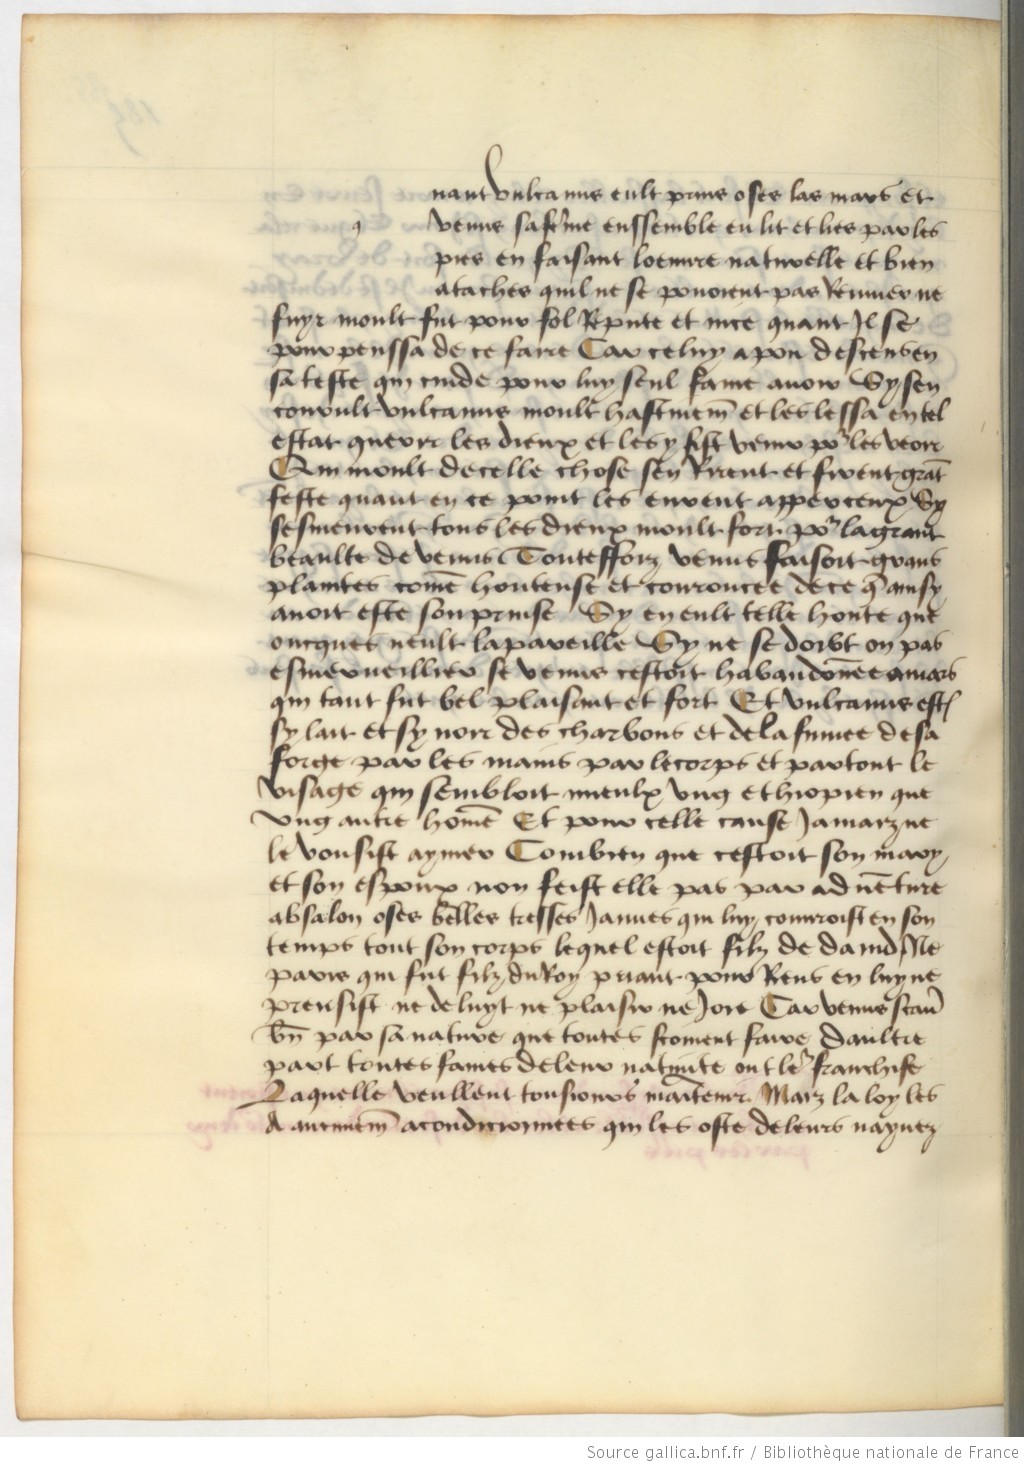 nant vulcanus eult prins oses las mars et
q venus sa feme enssemble eu lit et lies par les
pies en faisant loeuure naturelle et bien
ataches quil ne se pouoient pas Remuer ne
fuyr moult fut pour fol Repute et nice quant Jl se
pourpenssa de ce faire Car celuy a pou de scens en
sa teste qui cuide pour luy seul fame auoir Sy sen
courult vulcanus moult hastiuem̄ et les lessa en tel
estat querir les dieux et les y fist venir poᵘʳ les veoir
Qui moult de celle chose sen Rirent et firent grāt
feste quant en ce point les eurent apperceux Sy
sesmeurent tous les dieux moult fort poᵘʳ la grant
beaulte de venus Touteffoiz venus faisoit grans
plaintes comē honteuse et couroucee de ce q̄ ainsy
auoit este sourprinse Sy en eult telle honte que
oncques neult la pareille Sy ne se doibt on pas
esmerueillier se venus cestoit habandonee a mars
qui tant fut bel plaisant et fort Et vulcanus est
sy lait et sy noir des charbons et de la fumee de sa
forge par les mains par le corps et partout le
visage qui sembloit mieulx vng ethiopien que
vng autre homē Et pour celle cause Jamaiz ne
le voulsist aymer Combien que cestoit son mary
et son espoux non feist elle pas par aduēture
absalon oses belles tresses Jaunes qui luy couuroist en son
temps tout son corps lequel estoit filz de dauid Ne
paris qui fut filz du Roy priant pour Riens en luy ne
prensist ne deluyt ne plaisir ne Joie Car venus scau
bn̄ par sa nature que toutes scoiuent faire Daultre
part toutes fames de leur natiuite ont leᵘʳ franchise
Laquelle veullent tousiours maitenir Maiz la loy les
A aucunem̄ acondicionnees qui les oste de leurs nayuez
Source gallica.bnf.fr / Bibliothèque nationale de France